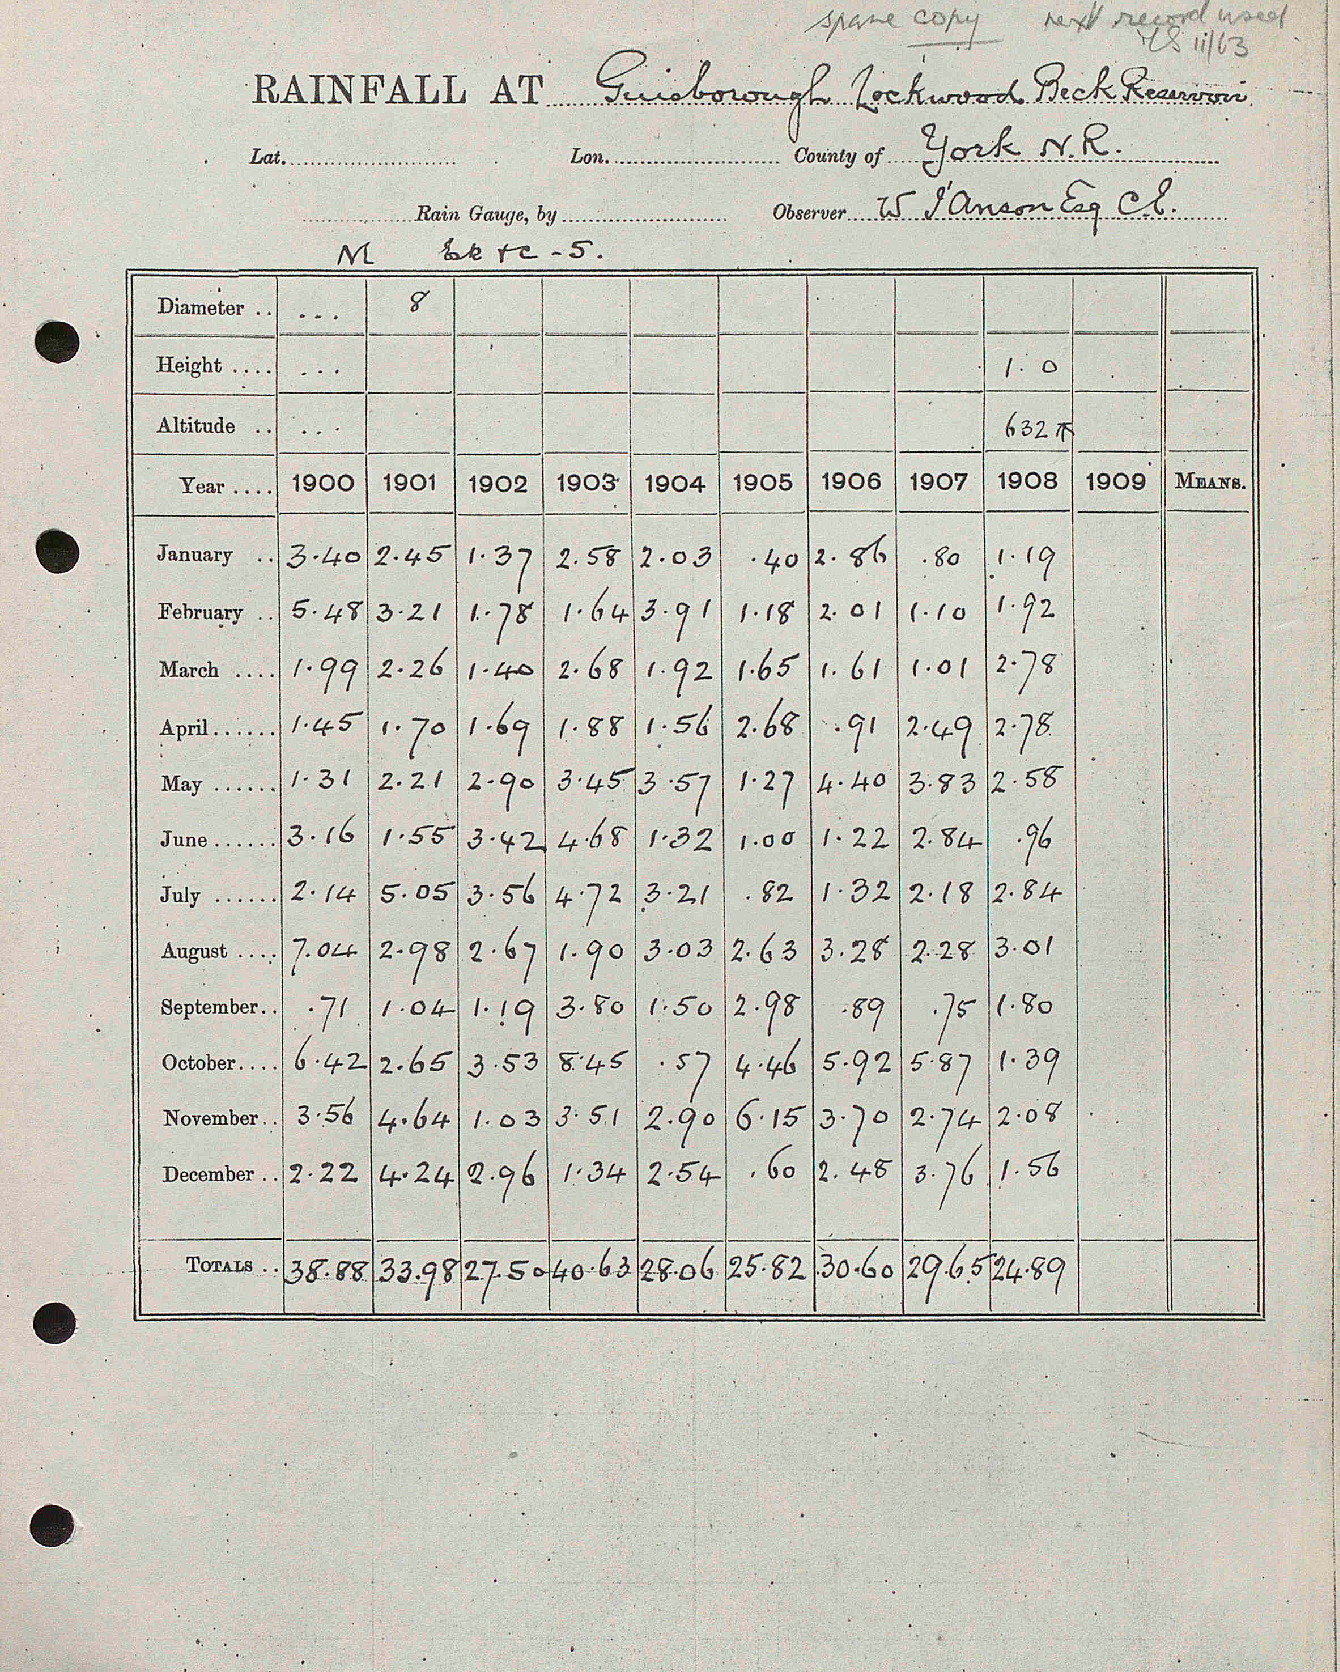 spare copy next record used
11/63
RAINFALL AT Guisborough Lockwood Beck Reservoir
Lat. Lon. County of York N.R.
Rain Gauge, by Observer W I'Anson Esq C.E.
M - 5.
Diameter .. ... 8
Height .... ... 1.0
Altitude .. ... 632
Year .... 1900 1901 1902 1903 1904 1905 1906 1907 1908 1909 MEANS.
January .. 3.40 2.45 1.37 2.58 2.03 .40 2.86 .80 1.19
February .. 5.48 3.21 1.78 1.64 3.91 1.18 2.01 1.10 1.92
March .... 1.99 2.26 1.40 2.68 1.92 1.65 1.61 1.01 2.78
April ...... 1.45 1.70 1.69 1.88 1.56 2.68 .91 2.49 2.78
May ...... 1.31 2.21 2.90 3.45 3.57 1.27 4.40 3.83 2.58
June ...... 3.16 1.55 3.42 4.68 1.32 1.00 1.22 2.84 .96
July ...... 2.14 5.05 3.56 4.72 3.21 .82 1.32 2.18 2.84
August .... 7.04 2.98 2.67 1.90 3.03 2.63 3.28 2.28 3.01
September .. .71 1.04 1.19 3.80 1.50 2.98 .89 .75 1.80
October .... 6.42 2.65 3.53 8.45 .57 4.46 5.92 5.87 1.39
November .. 3.56 4.64 1.03 3.51 2.90 6.15 3.70 2.74 2.08
December .. 2.22 4.24 2.96 1.34 2.54 .60 2.48 3.76 1.56
TOTALS .. 38.88 33.98 27.50 40.63 28.06 25.82 30.60 29.65 24.89